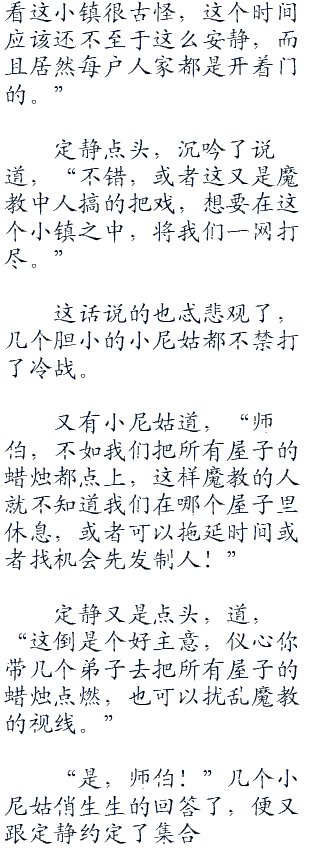 看这小镇很古怪，这个时间
应该还不至于这么安静，而
且居然每户人家都是开着门
的。”
定静点头，沉吟了说
道，“不错，或者这又是魔
教中人搞的把戏，想要在这
个小镇之中，将我们一网打
尽。”
这话说的也忒悲观了，
几个胆小的小尼姑都不禁打
了冷战。
又有小尼姑道，“师
伯，不如我们把所有屋子的
蜡烛都点上，这样魔教的人
就不知道我们在哪个屋子里
休息，或者可以拖延时间或
者找机会先发制人！”
定静又是点头，道，
“这倒是个好主意，仪心你
带几个弟子去把所有屋子的
蜡烛点燃，也可以扰乱魔教
的视线。”
“是，师伯！”几个小
尼姑俏生生的回答了，便又
跟定静约定了集合